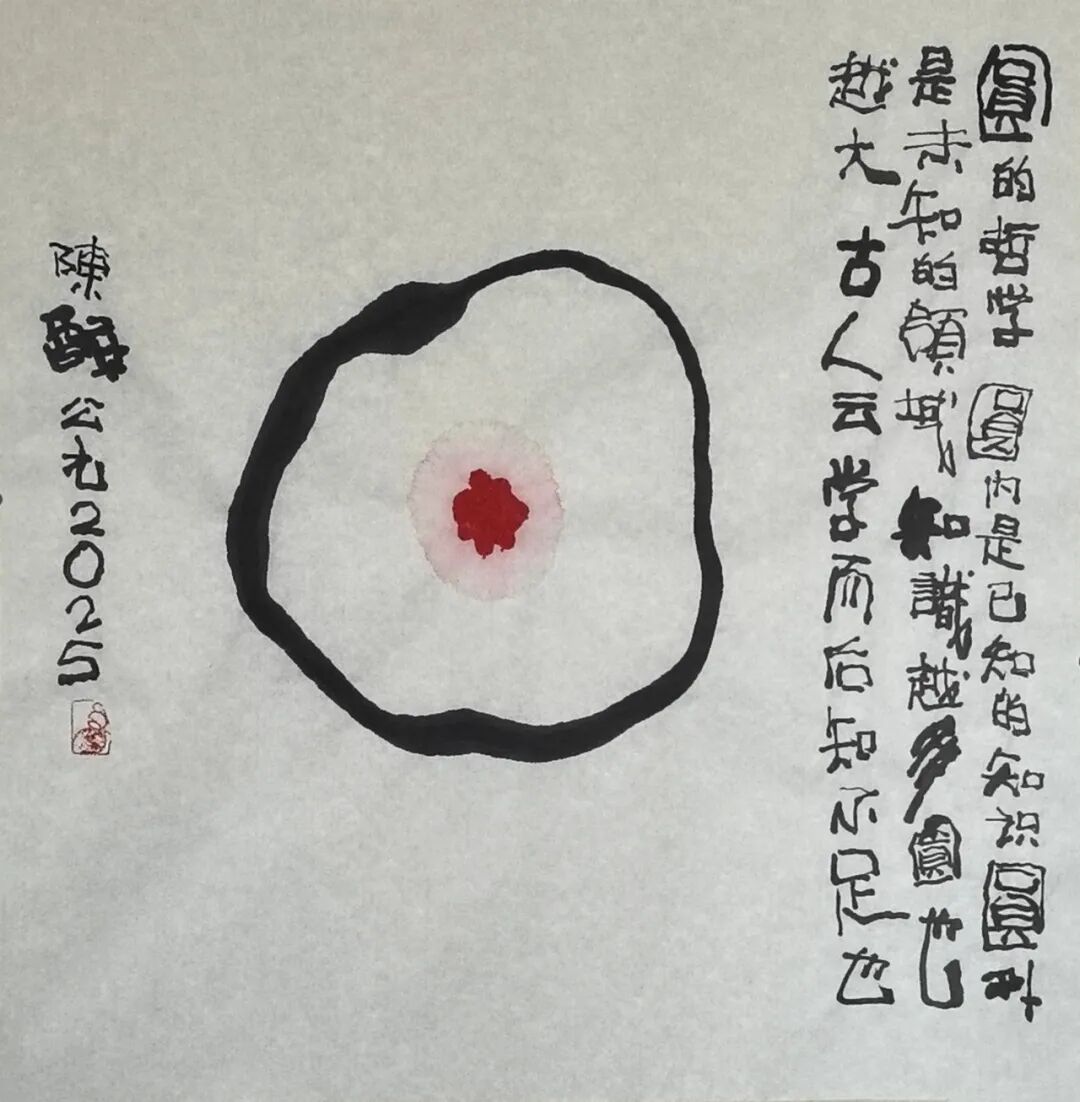 圓的哲学 圓内是已知的知识圓外
是未知的領域知識越多圓也
越大 古人云学而后知不足也
陳醉公元2025